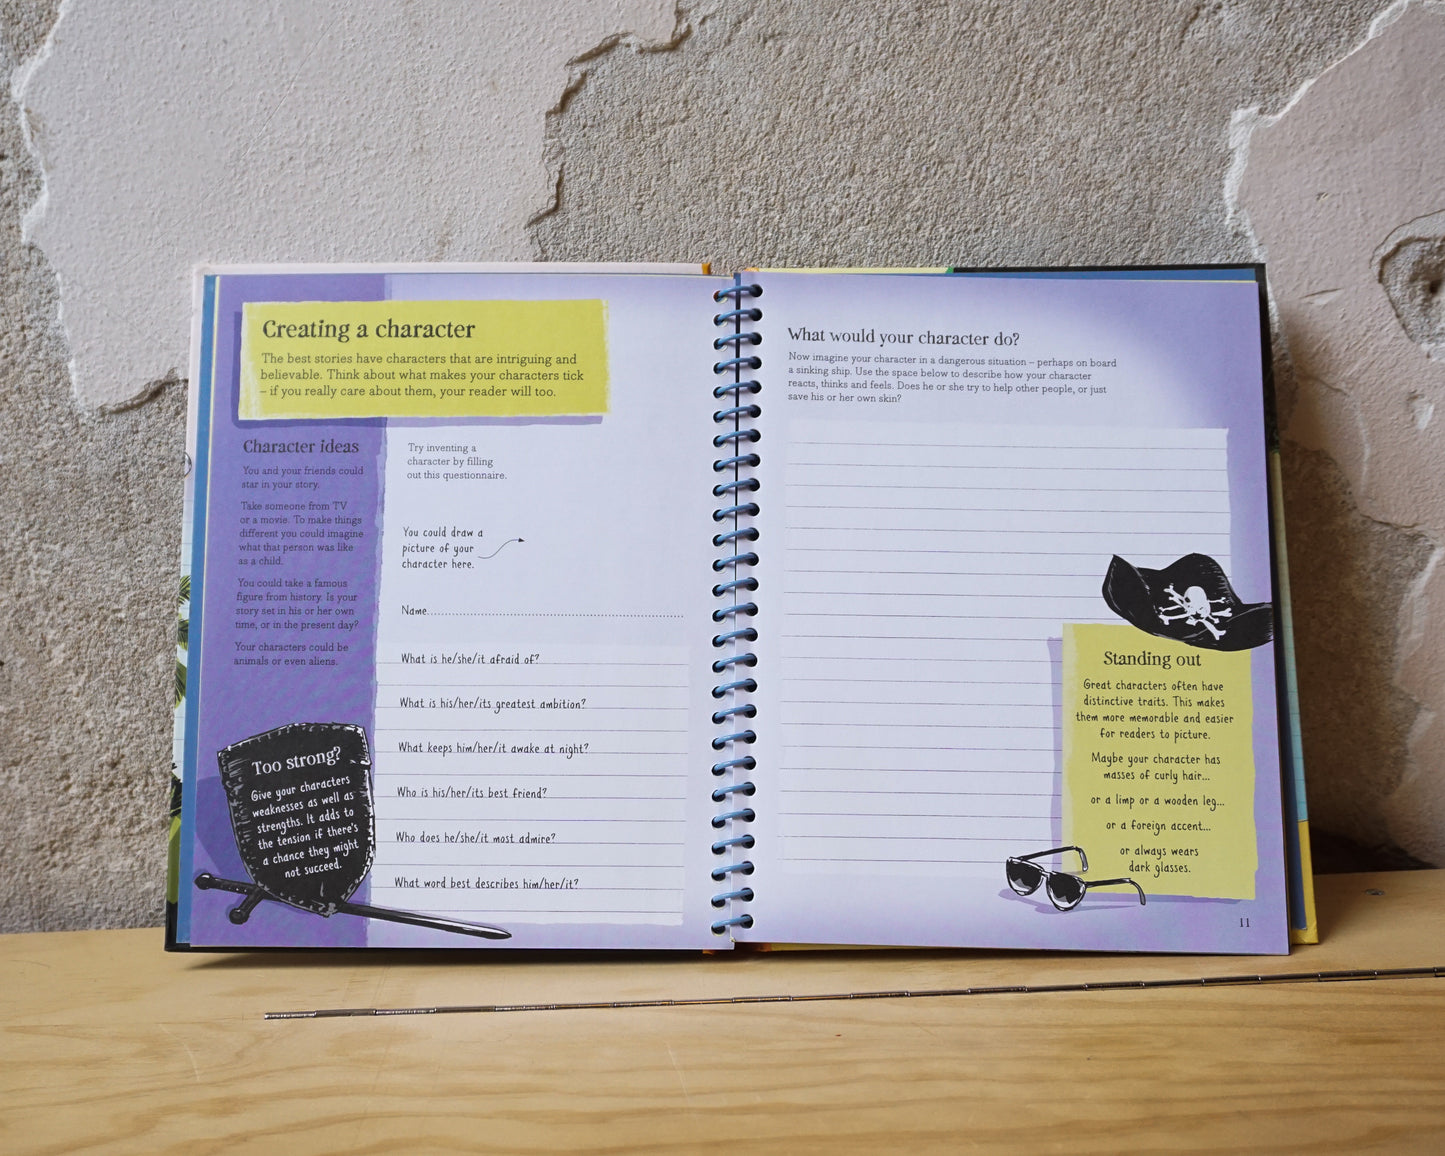 Creating a character
The best stories have characters that are intriguing and
believable. Think about what makes your characters tick
– if you really care about them, your reader will too.
Character ideas
You and your friends could
star in your story.
Take someone from TV
or a movie. To make things
different you could imagine
what that person was like
as a child.
You could take a famous
figure from history. Is your
story set in his or her own
time, or in the present day?
Your characters could be
animals or even aliens.
Too strong?
Give your characters
weaknesses as well as
strengths. It adds to
the tension if there's
a chance they might
not succeed.
Try inventing a
character by filling
out this questionnaire.
You could draw a
picture of your
character here.
Name
What is he/she/it afraid of?
What is his/her/its greatest ambition?
What keeps him/her/it awake at night?
Who is his/her/its best friend?
Who does he/she/it most admire?
What word best describes him/her/it?
What would your character do?
Now imagine your character in a dangerous situation – perhaps on board
a sinking ship. Use the space below to describe how your character
reacts, thinks and feels. Does he or she try to help other people, or just
save his or her own skin?
Standing out
Great characters often have
distinctive traits. This makes
them more memorable and easier
for readers to picture.
Maybe your character has
masses of curly hair...
or a limp or a wooden leg...
or a foreign accent...
or always wears
dark glasses.
11